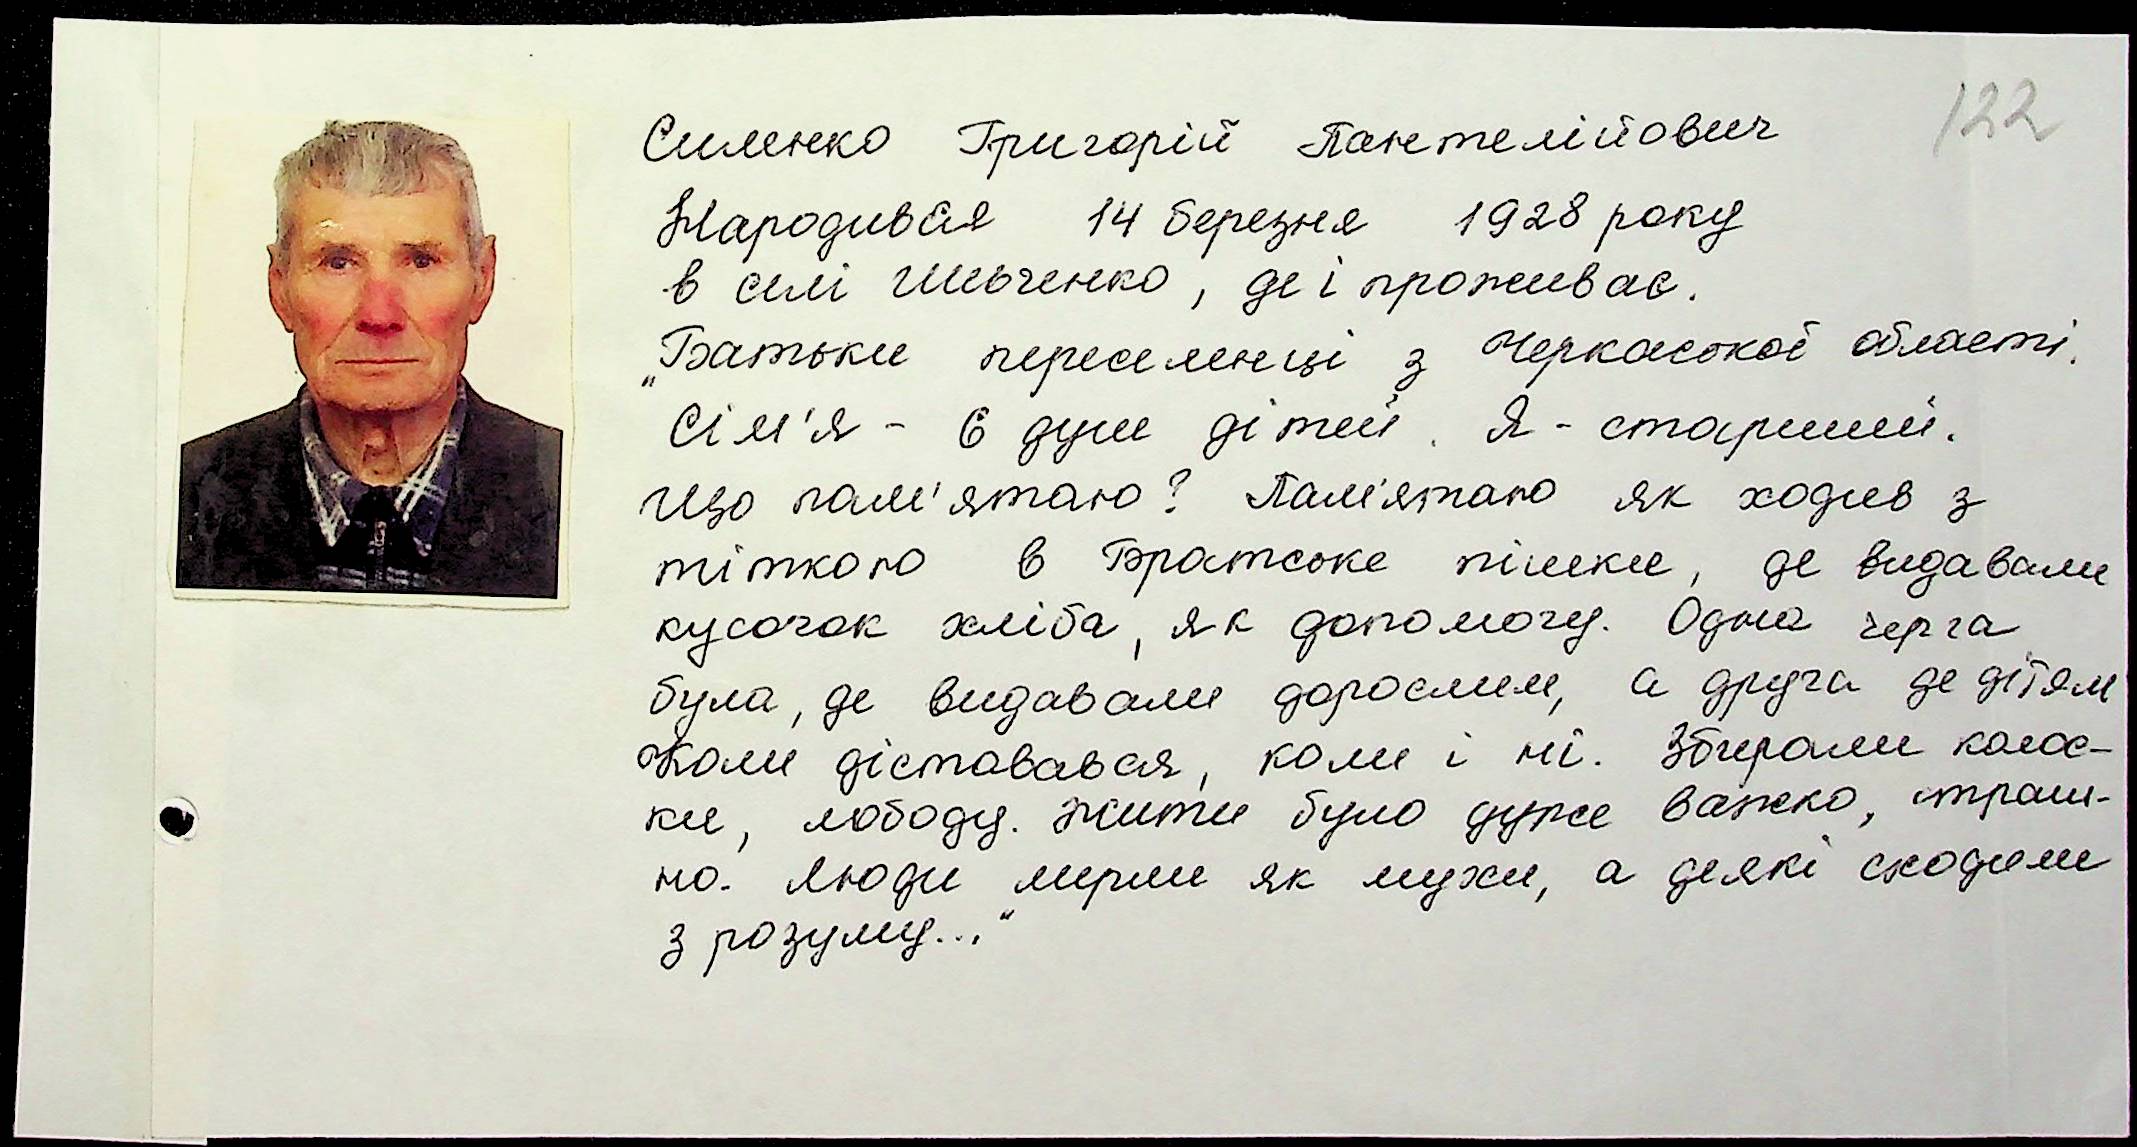 122
Силенко Григорій Пантелійович
Народився 14 березня 1928 року
в селі Шевченко, де і проживає.
"Батьки переселенці з Черкаської області.
Сім'я - 6 душ дітей. Я - старший.
Що пам'ятаю? Пам'ятаю як ходив з
тіткою в Братське пішки, де видавали
кусочок хліба, як допомогу. Одна черга
була, де видавали дорослим, а друга де дітям
Коли діставався, коли і ні. Збирали колос-
ки, лободу. Жити було дуже важко, страш-
но. Люди мерли як мухи, а деякі сходили
з розуму..."